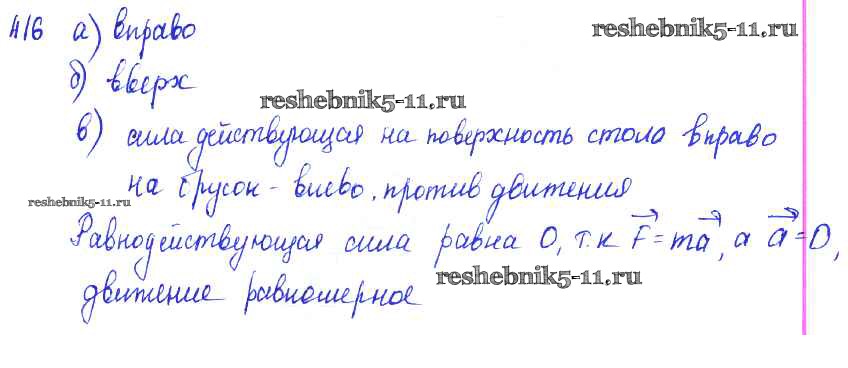 416 а) вправо
reshebnik5-11.ru
б) вверх
reshebnik5-11.ru
в) сила действующая на поверхность стола вправо
на брусок - влево, против движения
reshebnik5-11.ru
Равнодействующая сила равна 0, т.к F⃗ = ma⃗, а a⃗ = 0,
reshebnik5-11.ru
движение равномерное